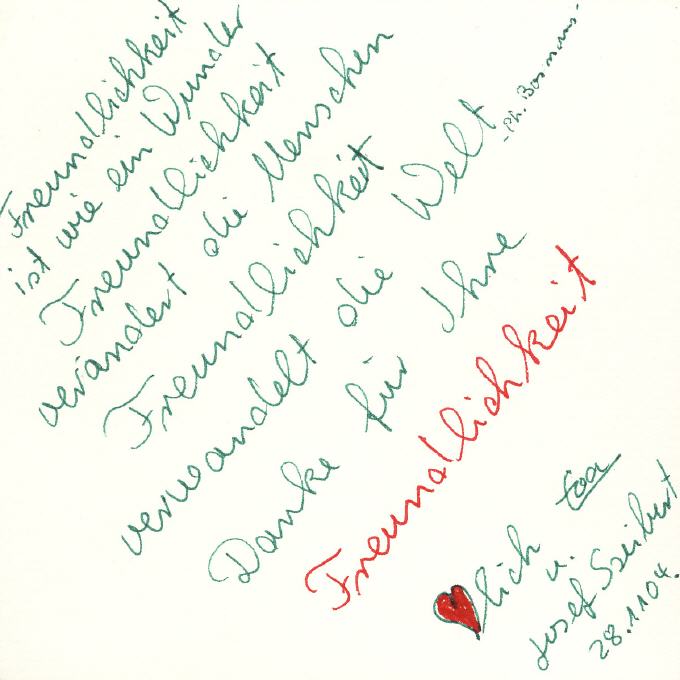 Freundlichkeit
ist wie ein Wunder
Freundlichkeit
verändert die Menschen
Freundlichkeit
verwandelt die Welt
-Ph. Bosmans-
Danke für Ihre
Freundlichkeit
lich
u.
Josef
28.1104.